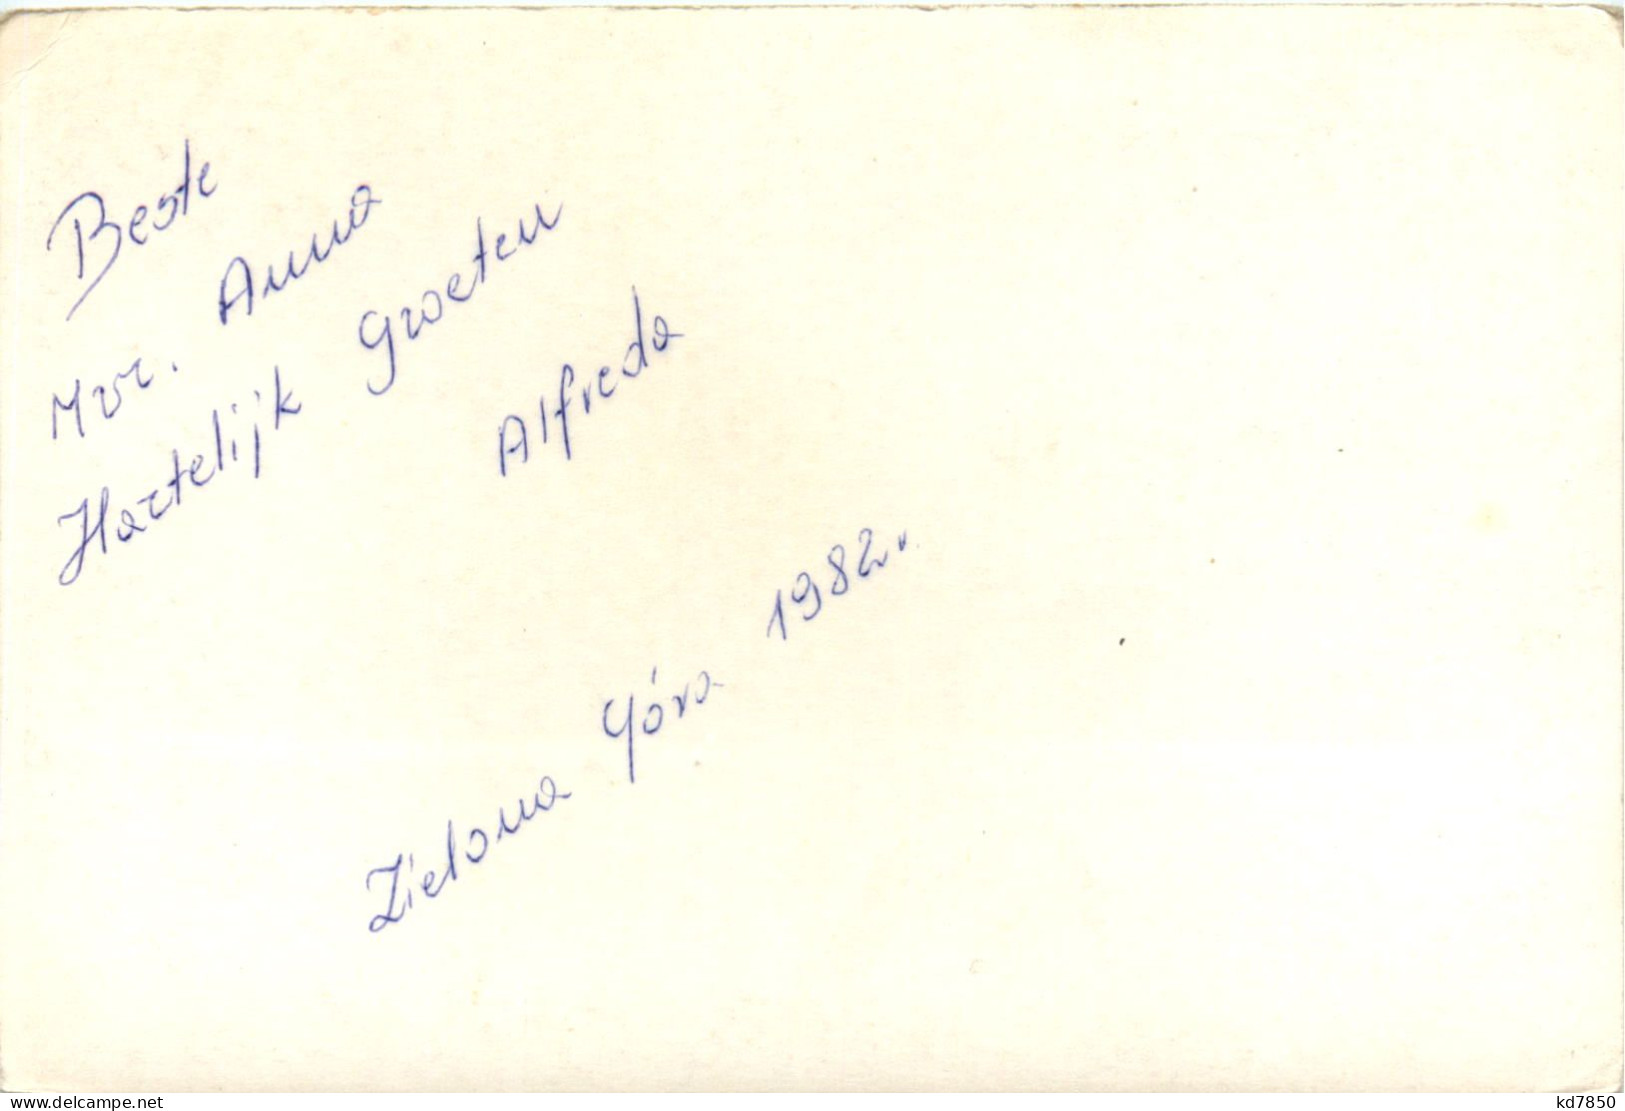 Beste
Mvr. Anna
Hartelijk Groeten
Alfreda
Zielona Góra 1982r.
www.delcampe.net
kd7850